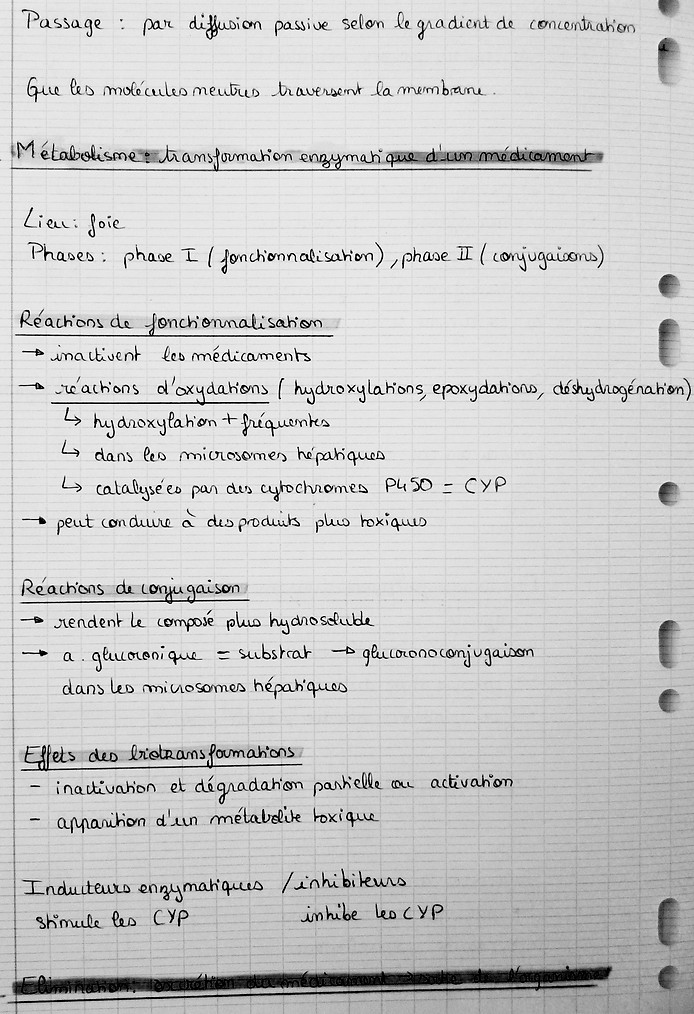 Passage : par diffusion passive selon le gradient de concentration
Que les molécules neutres traversent la membrane.
Métabolisme : transformation enzymatique d'un médicament
Lieu : foie
Phases : phase I (fonctionnalisation), phase II (conjugaisons)
Réactions de fonctionnalisation
→ inactivent les médicaments
→ réactions d'oxydations (hydroxylations, epoxydations, déshydrogénation)
↳ hydroxylation + fréquentes
↳ dans les microsomes hépatiques
↳ catalysées par des cytochromes P450 = CYP
→ peut conduire à des produits plus toxiques
Réactions de conjugaison
→ rendent le composé plus hydrosoluble
→ a. glucoronique = substrat → glucoronoconjugaison
dans les microsomes hépatiques
Effets des biotransformations
- inactivation et dégradation partielle ou activation
- apparition d'un métabolite toxique
Inducteurs enzymatiques / inhibiteurs
stimule les CYP inhibe les CYP
Elimination : excrétion du médicament de l'organisme